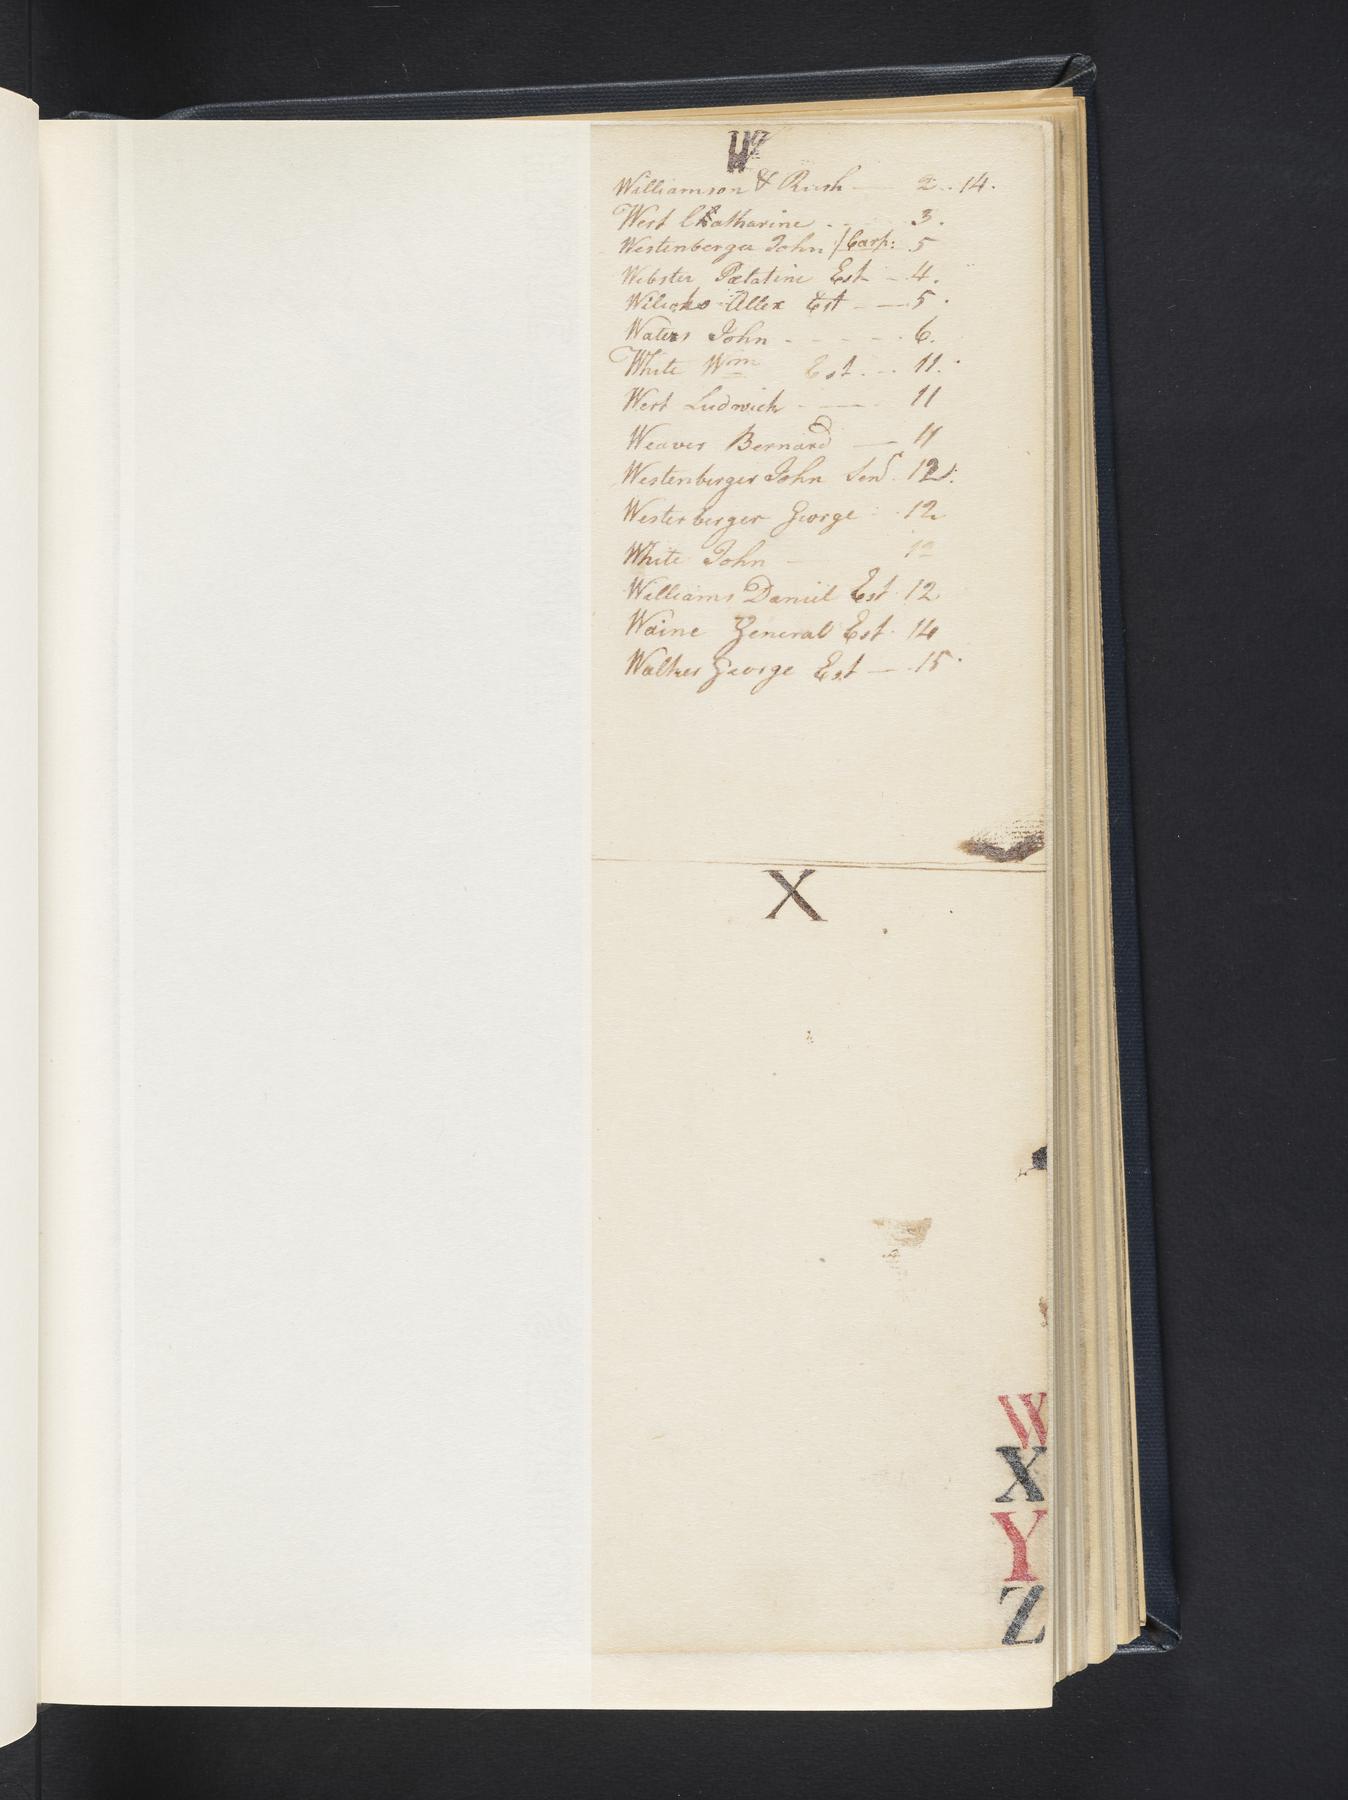 W
Williamson & Rush — 2..14.
West Chatharine . . 3.
Westenberger John /Carp: 5
Webster Pelatine Est - 4.
Wilcoks Allex Est - — 5.
Waters John - - - - 6.
White Wm Est . - . 11.
West Ludwich - — 11
Weaver Bernard — 11
Westenberger John Senr. 12.
Westerberger George - 12
White John — 12
Williams Daniel Est 12
Waine General Est. 14
Walker George Est — 15.
X
W
X
Y
Z